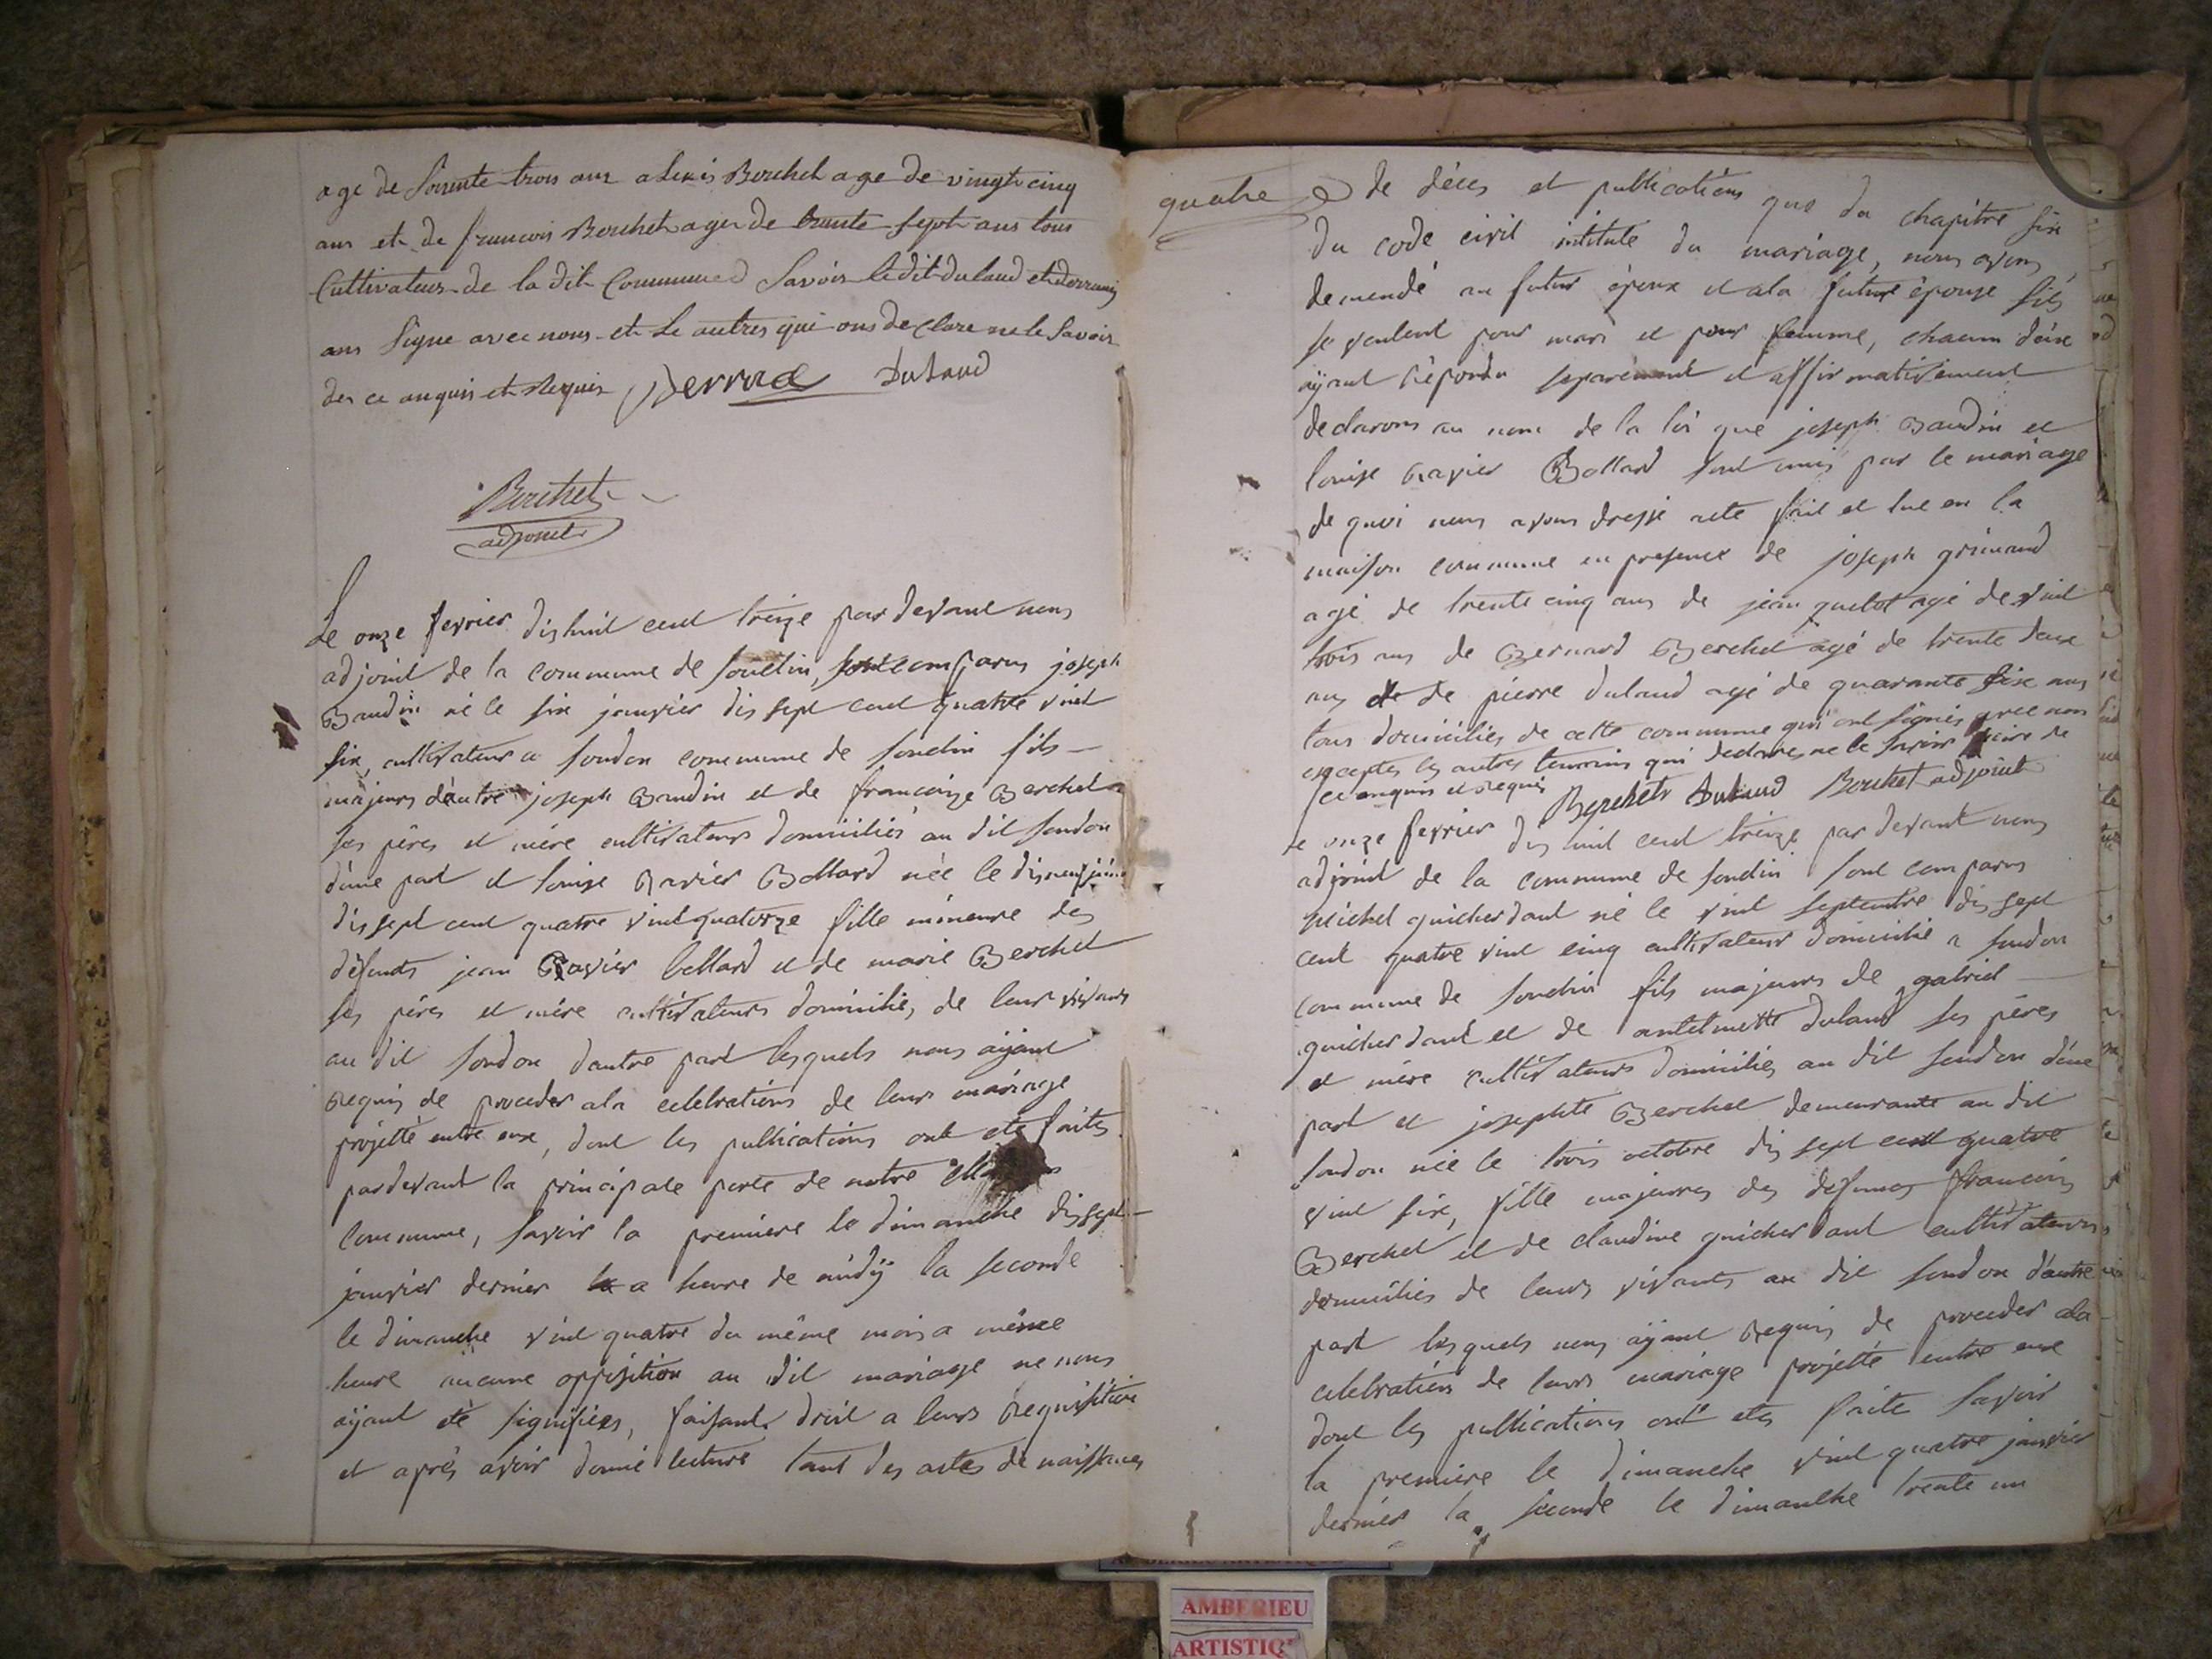 age de soixante trois ans alexis Berchet age de vingt cinq
ans et de francois Berchet ager de trente sept ans tous
Cultivateurs de la dit Commune Savoir ledit dulaud et derruaz
ans Signe avec nous et Le autres qui ons de clare ne le Savoir
des ce anquis et Requis Derruaz Dulaud
Berchet
adjoint
Le onze fevrier dishuit cent treize par devant nous
adjoint de la commune de souclin, sont comparus joseph
Baudin né le six janvier dis sept cent quatre vint
six, cultivateur a soudon commune de souclin fils
majeurs d'autre joseph Baudin et de francoise Berchet
ses péres et mére cultivateurs domiciliés au dit soudon
d'une part et louise Ravier Bollard née le disneuf
dis sept cent quatre vint quatorze fille mineure des
défunts jean Ravier bollard et de marie Berchet
ses péres et mére cultivateurs domiciliés de leur vivant
au dit soudon dautre part lesquels nous aÿant
Requis de proceder ala celebrations de leur mariage
projetté entre eux, dont les publications ont ete faites
pardevant la principale porte de notre
Commune, savoir la premiere le dimanche dissept
janvier dernier a heure de midÿ la seconde
le dimanche vint quatre du même mois a même
heure aucune opposition au dit mariage ne nous
aÿant été signifiées, faisant droit a leurs Requisition
et aprés avoir donné lecture tant des actes de naissances
quatre
de déces et publications que du chapitre six
du code civil intitulé du mariage, nous avons
demendé au futur époux et ala future épouse sils
se veulent pour mari et pour femme, chacun d'eux
aÿant répondu separément et affirmativement
declarons au nom de la loi que joseph Baudin et
louise Ravier Bollard sont unis par le mariage
de quoi nous avons dressé acte fait et lue en la
maison commune en presence de joseph grimaud
agé de trente cinq ans de jean quelot agé de vint
trois ans de Bernard Berchet agé de trente deux
ans et de pierre dulaud agé de quarante six ans
tous domiciliés de cette commune qui ont signés avec nous
exceptes les autres temoins qui declares ne le savoir faire de
ce anquis et requis Berchet Dulaud Berchet adjoint
Le onze fevrier dis huit cent treize par devant nous
adjoint de la commune de souclin sont comparus
Michel quicherdant né le vint septembre dis sept
cent quatre vint cinq cultivateur domicilié a soudon
commune de souclin fils majeurs de gabriel
quicherdant et de antelmette dulaud ses péres
et mére cultivateurs domiciliés au dit soudon d'une
part et josephte Berchet demeurante au dit
soudon née le trois octobre dis sept cent quatre
vint six, fille majeures des défunts francois
Berchet et de claudine quicherdant cultivateurs
domiciliés de leurs vivants au dit soudon d'autre
part lesquels nous aÿant Requis de proceder ala
celebration de leurs mariage projetté entre eux
dont les publications ont etes faite savoir
la premiere le dimanche vint quatre janvier
dernier la seconde le dimanche trente un
AMBERIEU
ARTISTIQ